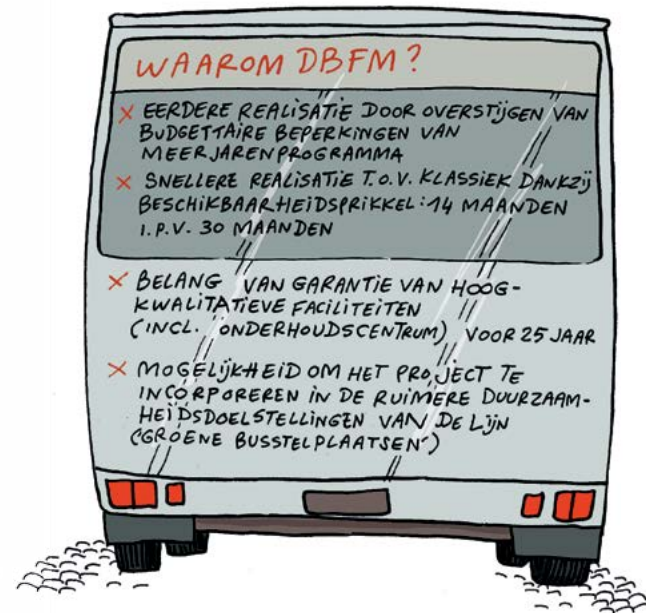 WAAROM DBFM?
× EERDERE REALISATIE DOOR OVERSTIJGEN VAN
BUDGETTAIRE BEPERKINGEN VAN
MEERJARENPROGRAMMA
× SNELLERE REALISATIE T.O.V. KLASSIEK DANKZIJ
BESCHIKBAARHEIDSPRIKKEL: 14 MAANDEN
I.P.V. 30 MAANDEN
× BELANG VAN GARANTIE VAN HOOG-
KWALITATIEVE FACILITEITEN
(INCL. ONDERHOUDSCENTRUM) VOOR 25 JAAR
× MOGELIJKHEID OM HET PROJECT TE
INCORPOREREN IN DE RUIMERE DUURZAAM-
HEIDSDOELSTELLINGEN VAN DE LIJN
('GROENE BUSSTELPLAATSEN')